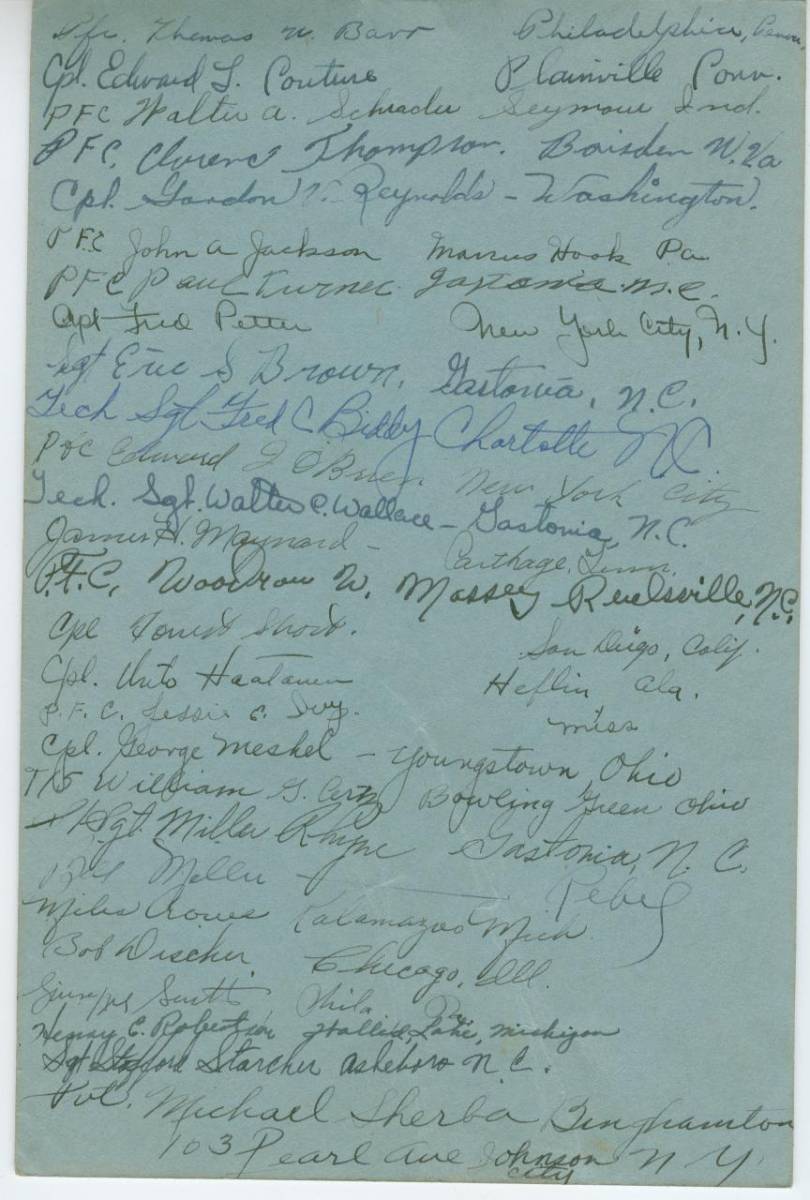 Pfc. Thomas W. Barr Philadelphia, Penna.
Cpl. Edward L. Couture Plainville Conn.
PFC Walter A. Schrader Seymour Ind.
PFC. Clarence Thompson. Baisden W. Va
Cpl. Gordon V. Reynolds - Washington.
PFC John A Jackson Marcus Hook Pa.
PFC Paul Turner Gastonia N.C.
Cpl Fred Petter New York City, N.Y.
Sgt Eric S Brown, Gastonia, N.C.
Tech Sgt Fred C Biddy Charlotte N.C.
Pvc Edward J O'Brien New York City
Tech. Sgt. Walter C. Wallace - Gastonia, N.C.
James H. Maynard - Carthage, Tenn.
P.F.C. Woodrow W. Massey Ruelsville, N.C.
Cpl Forest Short. San Diego, Calif.
Cpl. Unto Haatanen Heflin Ala.
P.F.C. Jessie C. Ivy. Miss
Cpl. George Meshel - Youngstown, Ohio
T/5 William G. Bowling Green Ohio
S/Sgt. Miller Rhyne Gastonia, N.C.
Bill Miller - Rebel
Miles Crowe Kalamazoo Mich
Bob Discher Chicago, Ill.
Phila Pa
Henry E. Robertson Lake, Michigan
Sgt Stafford Starcher Asheboro N.C.
Pvt. Michael Sherba Binghamton
103 Pearl Ave Johnson N Y
City